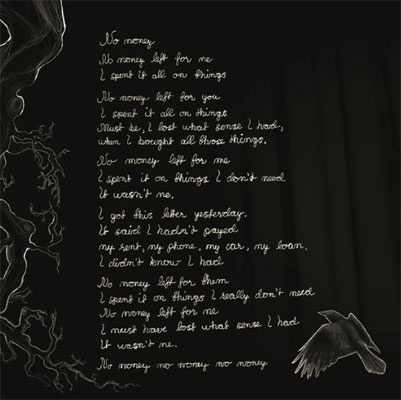 No money
No money left for me
I spent it all on things
No money left for you
I spent it all on things
Must be, I lost what sense I had,
when I bought all those things.
No money left for me
I spent it on things I don't need
It wasn't me.
I got this letter yesterday.
It said I hadn't payed
my rent, my phone, my car, my loan,
I didn't know I had
No money left for them
I spent it on things I really don't need
No money left for me
I must have lost what sense I had
It wasn't me.
No money no money no money